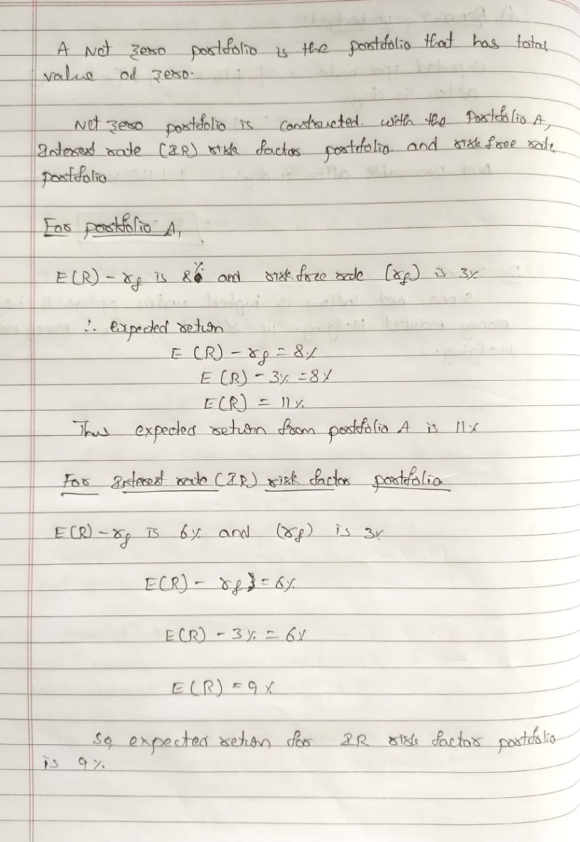 A Net zero portfolio is the portfolio that has total
value of zero.
Net zero portfolio is constructed with the Portfolio A,
Interest rate (IR) risk factor portfolio and risk free rate
portfolio
For portfolio A,
E(R) - rf is 8% and risk free rate (rf) is 3%
∴ expected return
E (R) - rf = 8%
E (R) - 3% = 8%
E(R) = 11%
Thus expected return from portfolio A is 11%
For Interest rate (IR) risk factor portfolio
E(R) - rf is 6% and (rf) is 3%
E(R) - rf = 6%
E(R) - 3% = 6%
E(R) = 9%
So expected return for IR risk factor portfolio
is 9%